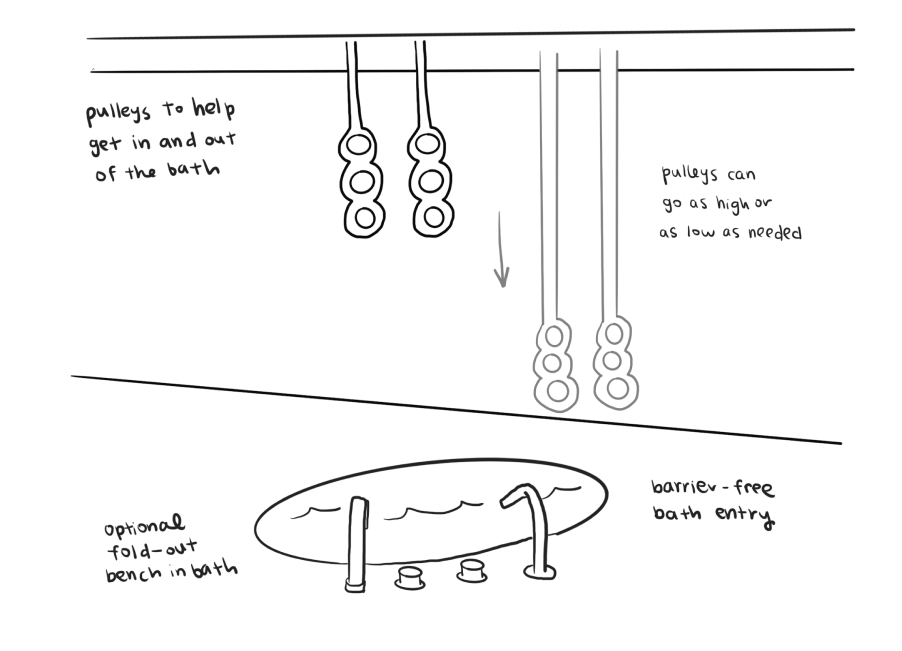 pulleys to help
get in and out
of the bath
pulleys can
go as high or
as low as needed
optional
fold-out
bench in bath
barrier-free
bath entry